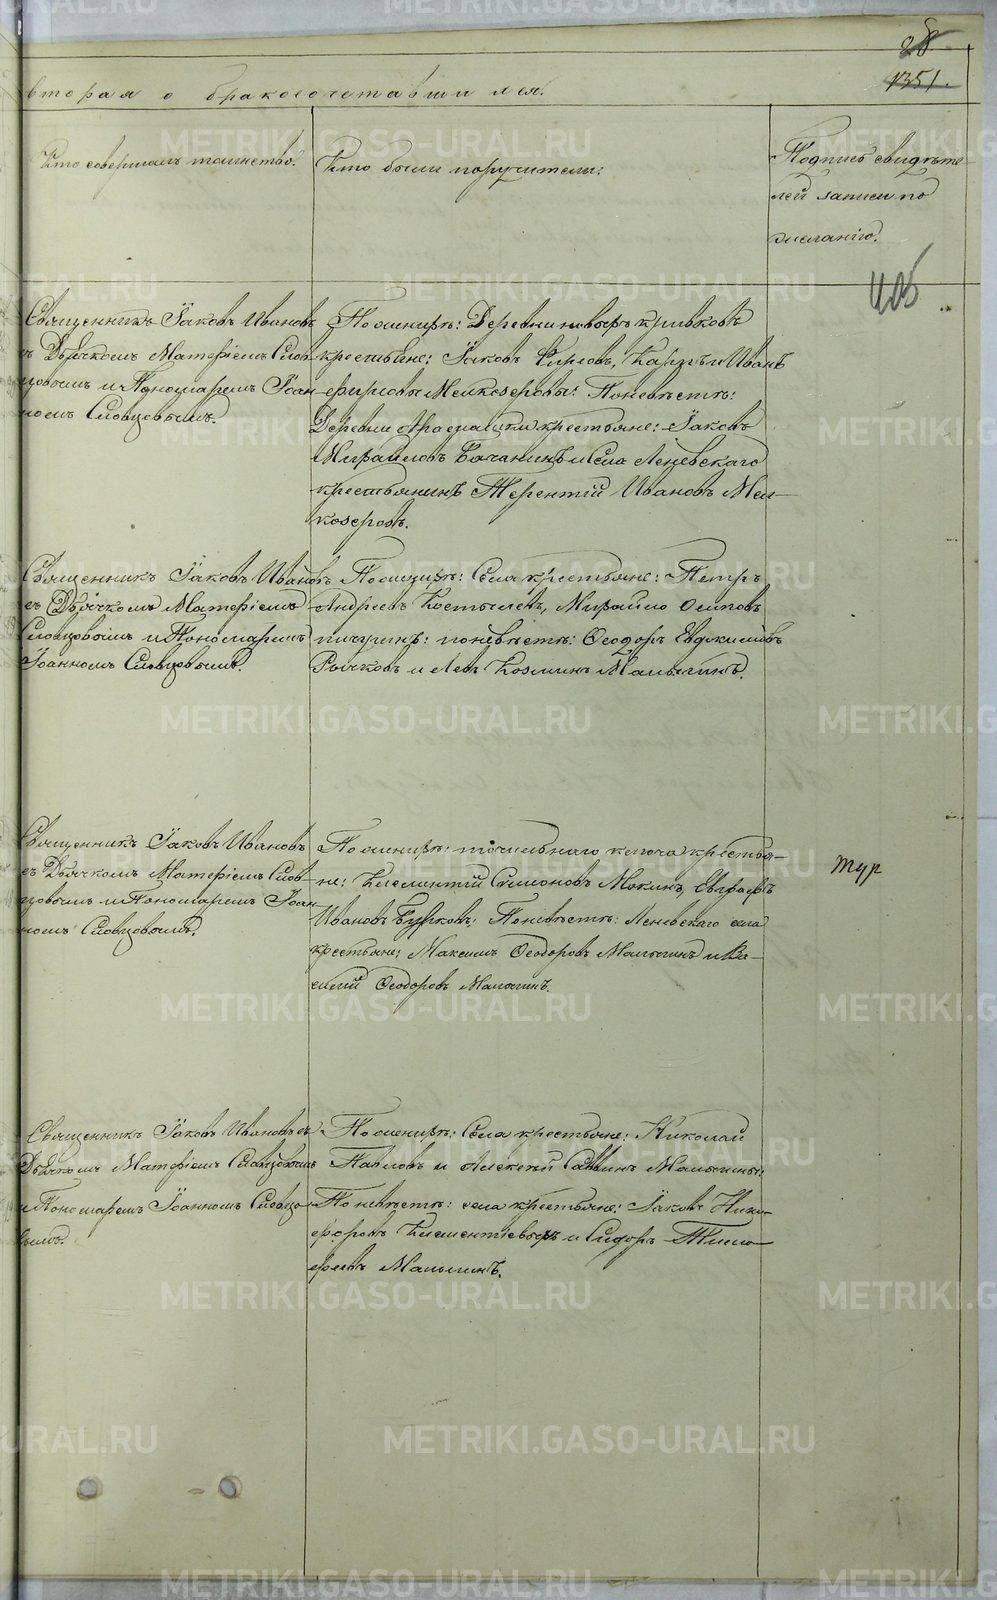 28
1351.
вторая о бракосочетавшихся.
Кто совершалъ таинство.
Кто были поручители:
Подпись свидѣте-
лей записи по
желанію.
Священникъ Іаковъ Ивановъ
съ Дьячкомъ Матфіемъ Слов-
цовымъ и Пономаремъ Іоан-
номъ Словцовымъ.
По женихѣ: Деревни
крестьяне: Іаковъ Карпъ и Иванъ
Мелкозеровы: По невѣстѣ:
Деревни крестьяне: Іаковъ
Михайловъ и Села Леневскаго
крестьянинъ Терентій Ивановъ Мел-
козеровъ.
Священникъ Іаковъ Ивановъ
съ Дьячкомъ Матфіемъ
Словцовымъ и Пономаремъ
Іоанномъ Словцовымъ.
По женихѣ: Села крестьяне: Петръ
Андреевъ Костылевъ, Михайло Осиповъ
Пичугинъ: по невѣстѣ: Ѳеодоръ Евдокимовъ
Рычковъ и Левъ Козминъ Малыгинъ.
Священникъ Іаковъ Ивановъ
съ Дьячкомъ Матфіемъ Слов-
цовымъ и Пономаремъ Іоан-
номъ Словцовымъ.
По женихѣ: точильнаго ключа крестья-
не: Климентій Симоновъ Мокинъ, Евграфъ
Ивановъ По невѣстѣ: Леневскаго села
крестьяне: Максимъ Ѳеодоровъ Малыгинъ и Ва-
силій Ѳеодоровъ Малыгинъ.
Священникъ Іаковъ Ивановъ съ
Дьячкомъ Матфіемъ Словцовымъ
и Пономаремъ Іоанномъ Словцо-
вымъ.
По женихѣ: Села крестьяне: Николай
Павловъ и Алексѣй Саввинъ Малыгины:
По невѣстѣ: села крестьяне: Іаковъ Ники-
форовъ Климентьевыхъ и Сидоръ Тимо-
феевъ Малыгинъ.
METRIKI.GASO-URAL.RU